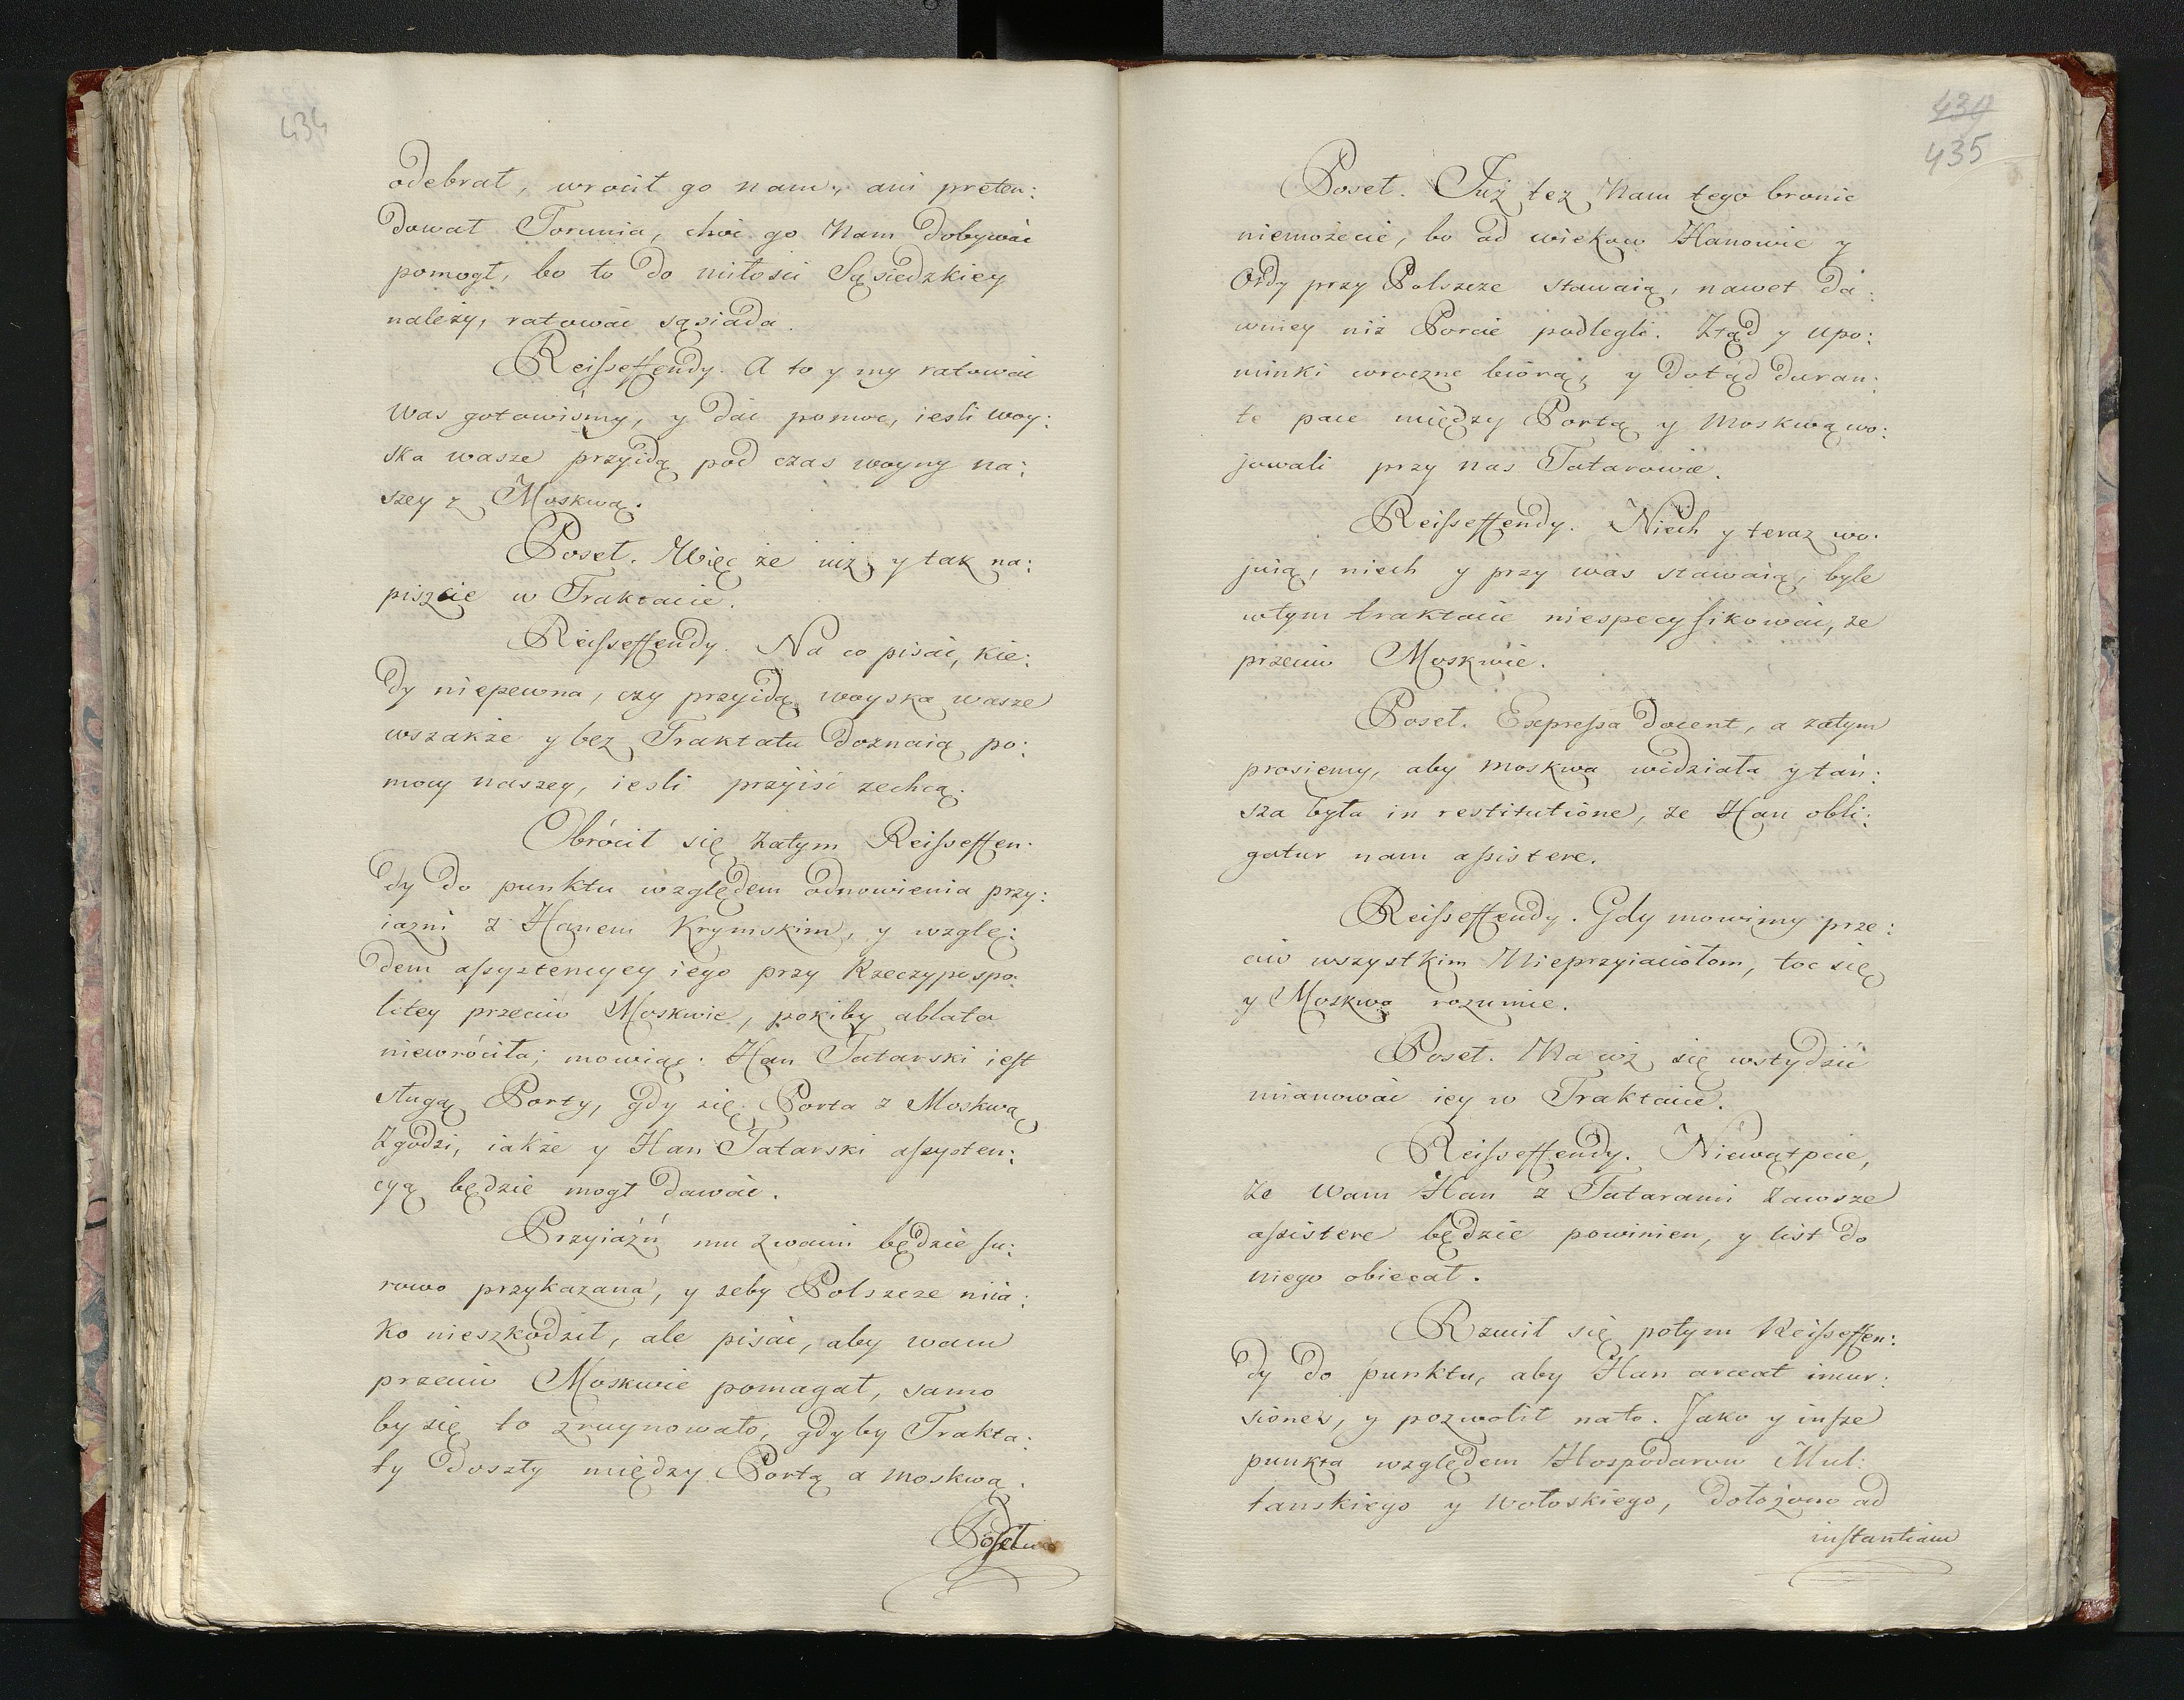 434
odebrał, wrocił go nam, ani preten:
dował Torunia, choć go Nam dobywać
pomogł, bo to do miłości Sąsiedzkiey
należy, ratować sąsiada.
Reisseffendy. A to y my ratować
Was gotowiśmy, y dać pomoc, iesli woy:
ska wasze przyidą pod czas woyny na:
szey z Moskwą.
Poseł. Więc że iuż y tak na:
piszcie w Traktacie.
Reisseffendy. Na co pisać, kie:
dy niepewna, czy przyidą woyska wasze
wszakże y bez Traktatu doznaią po:
mocy naszey, iesli przyiść zechcą.
Obrócił się zatym Reisseffen:
dy do punktu względem odnowienia przy:
iazni z Hanem Krymskim, y wzglę:
dem assystencyey iego przy Rzeczypospo:
litey przeciw Moskwie, pokiby ablata
niewróciła; mowiąc: Han Tatarski iest
sługą Porty, gdy się Porta z Moskwą
Zgodzi, iakże y Han Tatarski assysten:
cyą będzie mogł dawać.
Przyiaźń mu zwami będzie su:
rowo przykazana, y zeby Polszcze niia:
ko nieszkodził, ale pisać, aby wam
przeciw Moskwie pomagał, samo
by się to zruynowało, gdyby Trakta:
ty doszły między Portą a Moskwą.
Poseł
435
Poseł. Już też Nam tego bronić
niemożecie, bo od wiekow Hanowie y
Ordy przy Polszcze stawaią, nawet da:
wniey niż Porcie podlegli. Ztąd y upo:
minki wroczne biorą, y dotąd duran:
te pace między Portą y Moskwą wo:
jowali przy nas Tatarowie.
Reisseffendy. Niech y teraz wo:
juią, niech y przy was stawaią, byle
wtym traktacie niespecyfikować, ze
przeciw Moskwie.
Poseł. Expressa docent, a zatym
prosiemy, aby Moskwa widziała y tań:
sza była in restitutione, ze Han obli:
gatur nam assistere.
Reisseffendy. Gdy mowimy prze:
ciw wszystkim Nieprzyiaciołom, toć się
y Moskwa rozumie.
Poseł. Na cóż się wstydzić
mianować iey w Traktacie.
Reisseffendy. Niewątpcie,
że Wam Han z Tatarami zawsze
assistere będzie powinien, y list do
niego obiecał.
Rzucił się potym Reisseffen:
dy do punktu, aby Han arceat incur:
siones, y pozwolił nato. Jako y insze
punkta względem Hospodarow Mul:
tanskiego y Wołoskiego, dołożono ad
instantiam